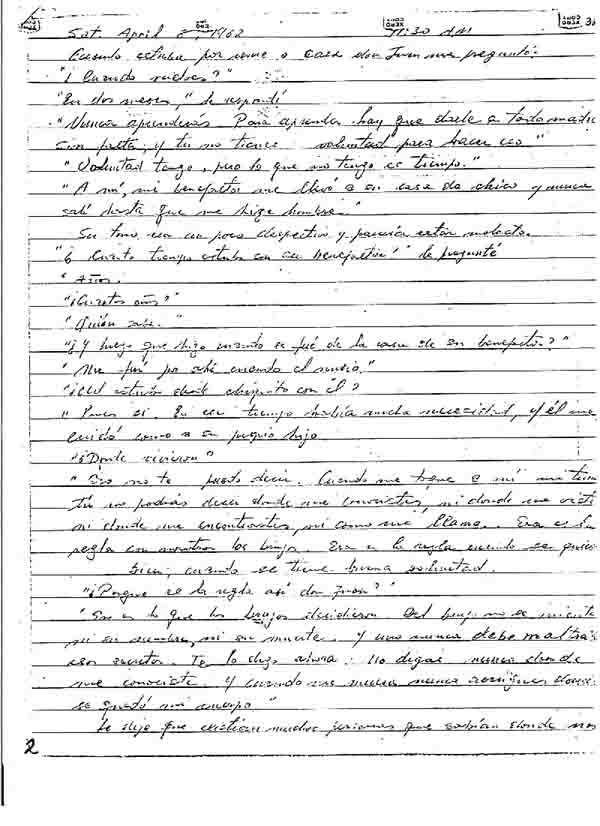 Sat. April 8, 1962 11:30 AM
Cuando estaba por irme a casa don Juan me preguntó:
"¿Cuando vuelves?"
"En dos meses," le respondí
"Nunca aprenderás. Para aprender hay que darle a toda madre
sin falta, y tu no tienes voluntad para hacer eso"
"Voluntad tengo, pero lo que no tengo es tiempo."
"A mí, mi benefactor me llevó a su casa de chico y nunca
salí hasta que me hize hombre."
Su tono era un poco despectivo y parecía estar molesto.
"¿Cuanto tiempo estuvo con su benefactor?" le pregunté
"Años."
"¿Cuantos años?"
"Quién sabe."
"¿Y luego que hizo cuando se fué de la casa de su benefactor?"
"Me fuí por ahí cuando el murió."
"¿Ud estuvo desde chiquito con él?
"Pues si. En ese tiempo había mucha necesidad, y él me
cuidó como a su propio hijo
"¿Donde vivieron?"
"Eso no te puedo decir. Cuando me traje a mí mi
tú no podrás decir donde me conociste, ni donde me viste
ni donde me encontraste, ni como me llamo. Esa es la
regla con nosotros los brujos. Esa es la regla cuando se quiere
bien, cuando se tiene buena voluntad.
"¿Porque es la regla así don Juan?"
"Eso es lo que los brujos decidieron. Del brujo no se
ni su nombre, ni su muerte. Y uno nunca debe
esos secretos. Te lo digo ahora: No digas nunca donde
me conociste. Y cuando me muera nunca donde
se quedó mi cuerpo"
Le dije que existían muchas personas que sabían donde nos
2